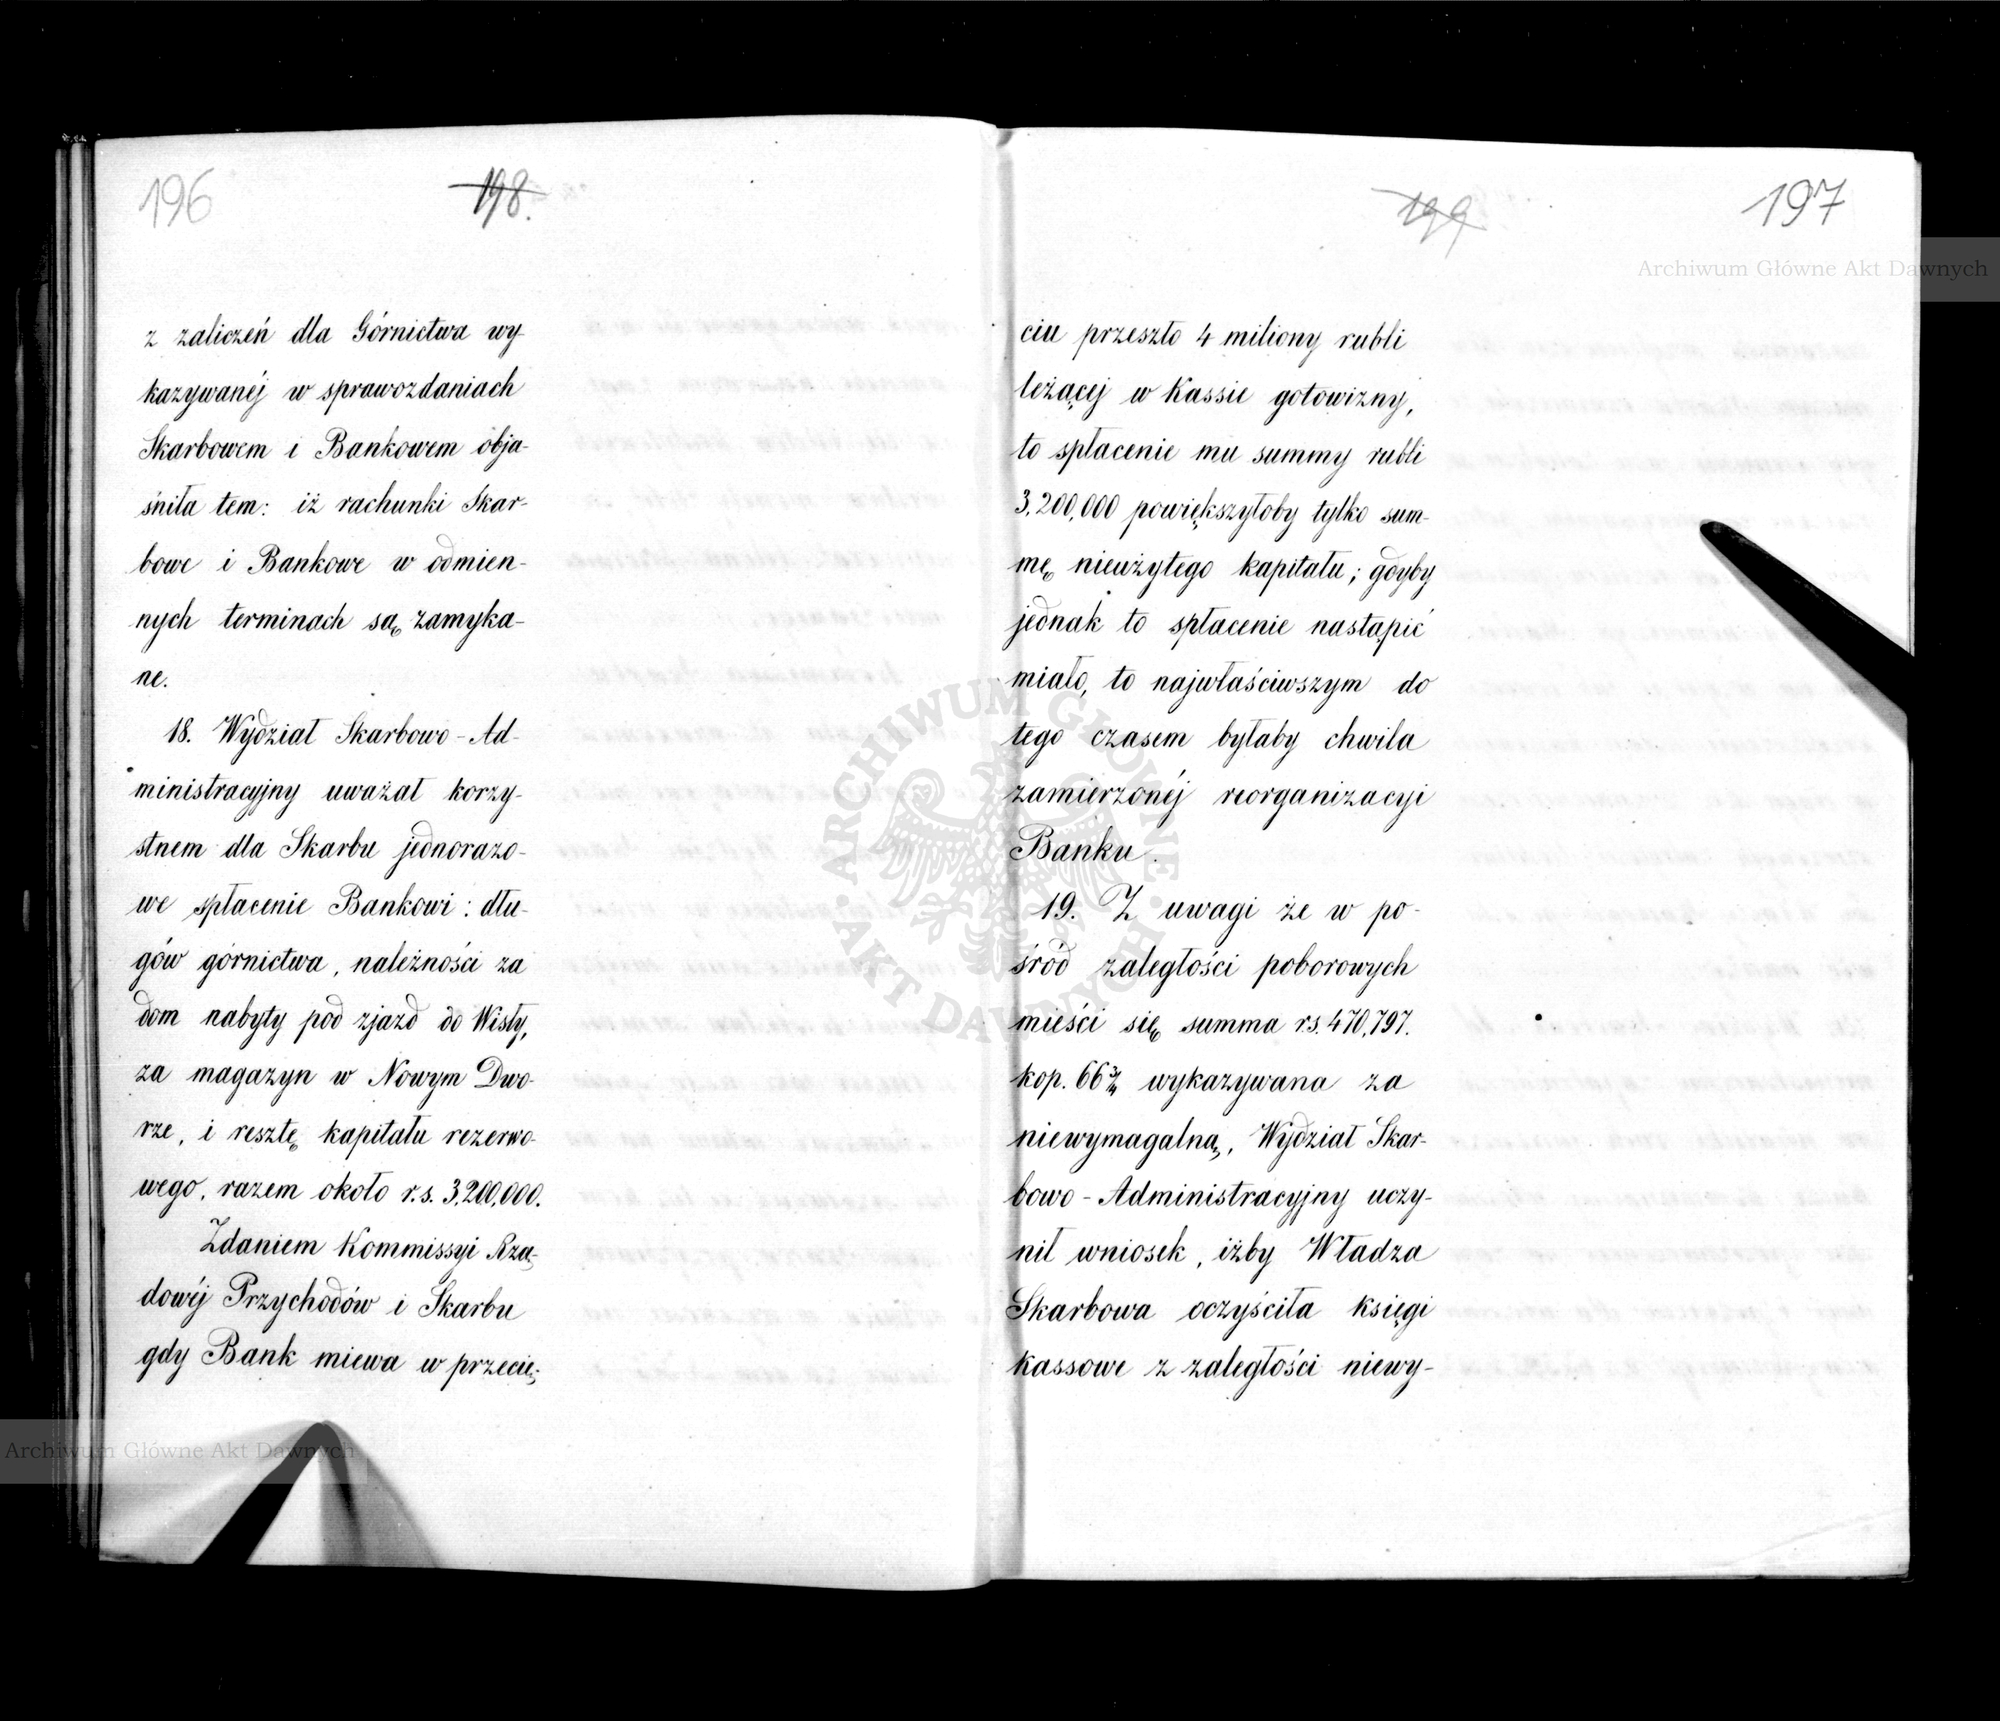 196
198.
z zaliczeń dla Górnictwa wy
kazywanéj w sprawozdaniach
Skarbowem i Bankowem obja-
śniła tem: iż rachunki Skar-
bowe i Bankowe w odmien-
nych terminach są zamyka-
ne.
18. Wydział Skarbowo-Ad-
ministracyjny uważał korzy-
stnem dla Skarbu jednorazo-
we spłacenie Bankowi: dłu-
gów górnictwa, należności za
dom nabyty pod zjazd do Wisły,
za magazyn w Nowym Dwo-
rze, i resztę kapitału rezerwo-
wego, razem około r.s. 3,200,000.
Zdaniem Kommissyi Rzą-
dowéj Przychodów i Skarbu
gdy Bank miewa w przecię-
199
197
ciu przeszło 4 miliony rubli
leżącej w Kassie gotowizny,
to spłacenie mu summy rubli
3,200,000 powiększyłoby tylko sum-
mę nieużytego kapitału; gdyby
jednak to spłacenie nastąpić
miało, to najwłaściwszym do
tego czasem byłaby chwila
zamierzonéj reorganizacyi
Banku.
19. Z uwagi że w po-
śród zaległości poborowych
mieści się summa rs. 470,797.
kop. 66 3/4 wykazywana za
niewymagalną, Wydział Skar-
bowo-Administracyjny uczy-
nił wniosek, iżby Władza
Skarbowa oczyściła księgi
kassowe z zaległości niewy-
Archiwum Główne Akt Dawnych
ARCHIWUM GŁÓWNE
AKT DAWNYCH
Archiwum Główne Akt Dawnych